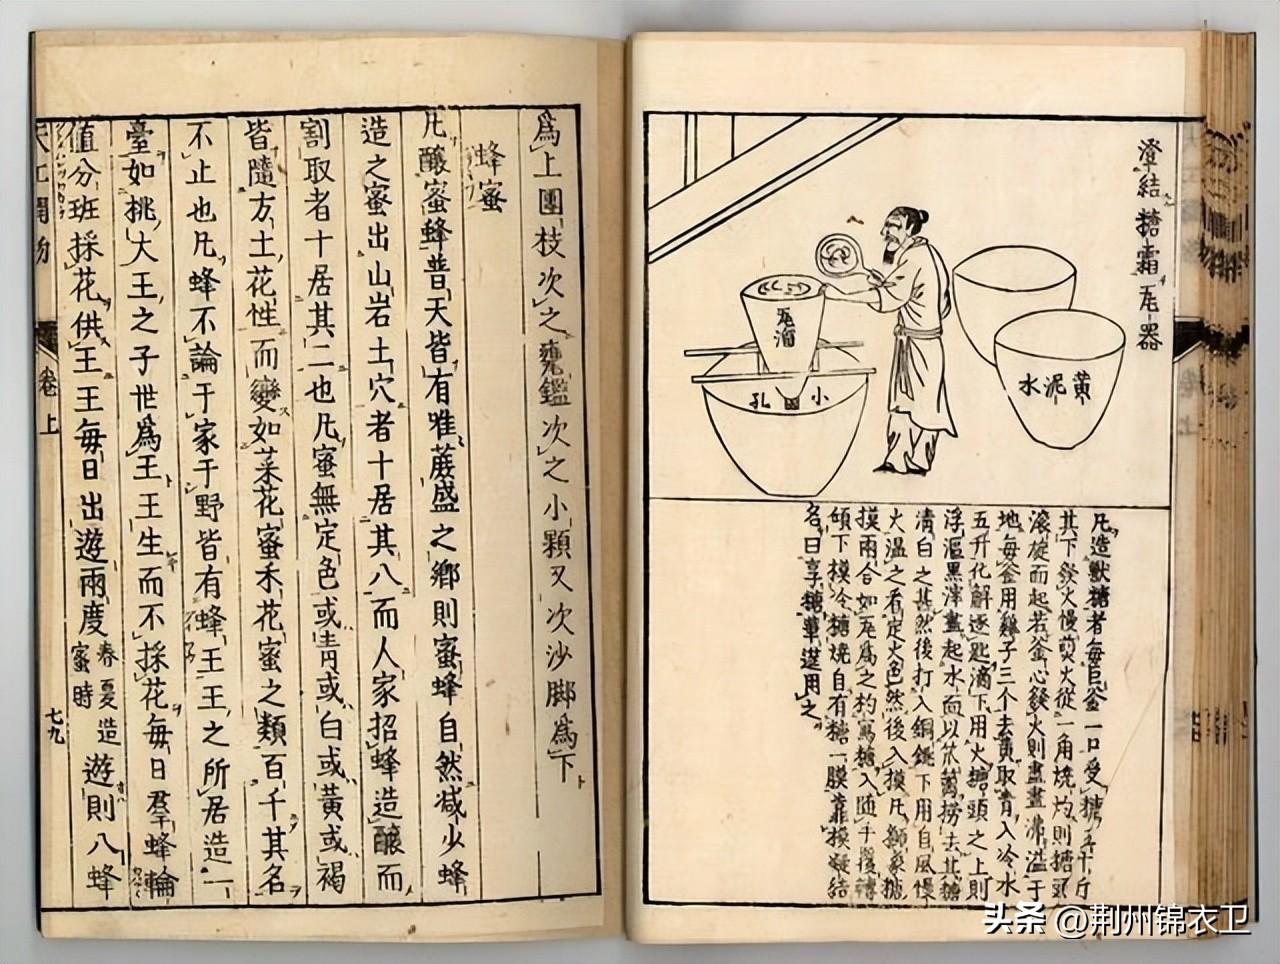 澄結糖霜瓦器
瓦溜
小孔
黄泥水
凡造獸糖者每巨釜一口受糖五十斤
其下發火慢煎火從一角燒灼則糖頭
滾旋而起若釜心發火則盡盡沸溢于
地每釜用雞子三个去黄取青入冷水
五升化解逐匙滴下用火糖頭之上則
浮漚黒滓盡起水面以笊篱撈去其糖
清白之甚然後打入銅銚下用自風慢
火温之看定火色然後入模凡獅象糖
摸兩合如瓦爲之杓寫糖入随手覆轉
傾下模冷糖燒自有糖一膜靠模凝結
名曰享糖華筵用之
爲上團枝次之甕鑑次之小顆又次沙脚爲下
蜂蜜
凡釀蜜蜂普天皆有唯蔗盛之鄉則蜜蜂自然减少蜂
造之蜜出山岩土穴者十居其八而人家招蜂造釀而
割取者十居其二也凡蜜無定色或青或白或黄或褐
皆隨方土花性而變如菜花蜜禾花蜜之類百千其名
不止也凡蜂不論于家于野皆有蜂王王之所居造一
臺如桃大王之子世爲王王生而不採花每日羣蜂輪
值分班採花供王王每日出遊兩度春夏造蜜時遊則八蜂
天工開物 卷上 七九
头条 @荆州锦衣卫